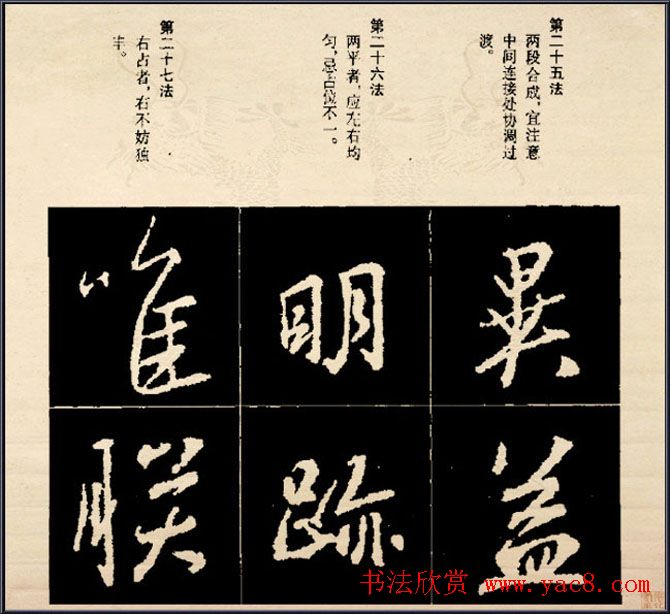 第二十五法
两段合成，宜注意
中间连接处协调过
渡。
第二十六法
两平者，应左右均
匀，忌占位不一。
第二十七法
右占者，右不妨独
丰。
益
明
跡
唯
书法欣赏 www.yac8.com